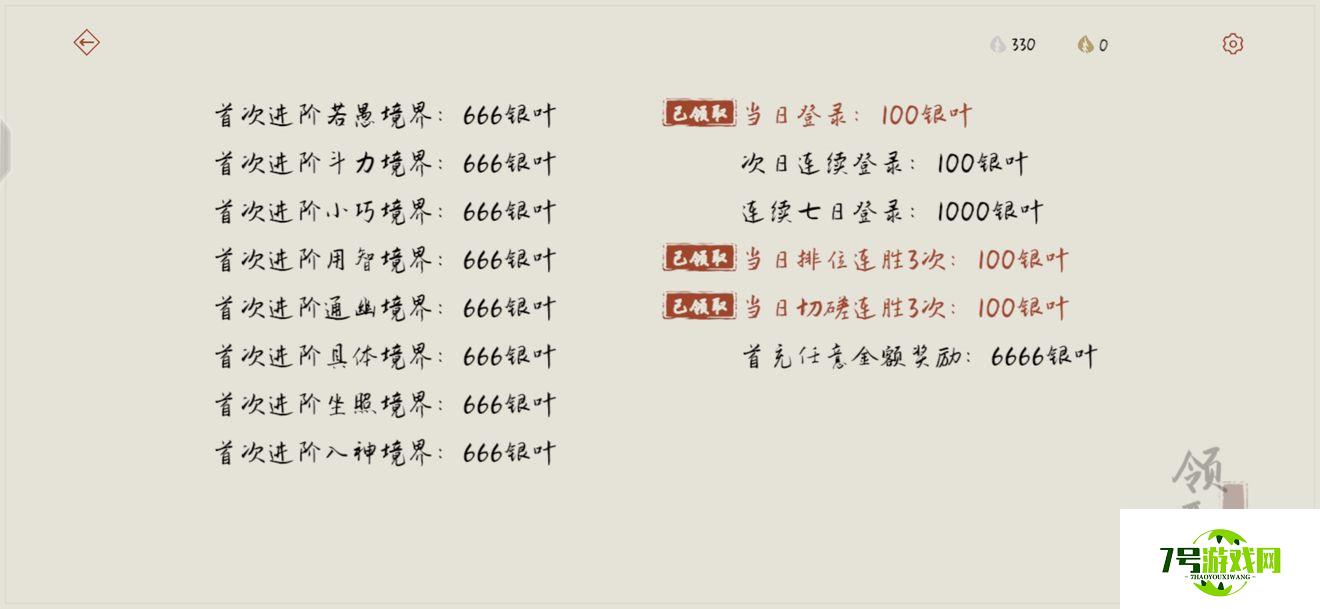 330
0
首次进阶若愚境界：666银叶
首次进阶斗力境界：666银叶
首次进阶小巧境界：666银叶
首次进阶用智境界：666银叶
首次进阶通幽境界：666银叶
首次进阶具体境界：666银叶
首次进阶坐照境界：666银叶
首次进阶入神境界：666银叶
已领取 当日登录：100银叶
次日连续登录：100银叶
连续七日登录：1000银叶
已领取 当日排位连胜3次：100银叶
已领取 当日切磋连胜3次：100银叶
首充任意金额奖励：6666银叶
领
7号游戏网
-7HAOYOUXIWANG-